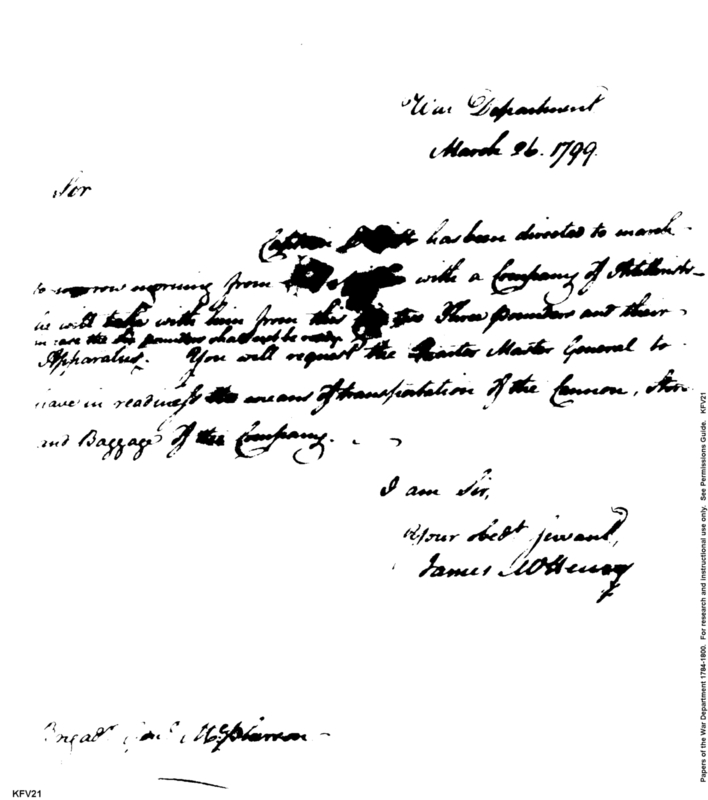 War Department
March 26. 1799.
Sir
Captain has been directed to march
to morrow morning from with a Company of Artillerists
he will take with him from this two Three pounders and their
in case the six pounders shall not be ready
Apparatus. You will request the Quarter Master General to
have in readiness the means of transportation of the Cannon,
and Baggage of the Company.
I am Sir,
Your obedt servant,
James McHenry
Brigadr Genl McPherson
KFV21
Papers of the War Department 1784-1800. For research and instructional use only. See Permissions Guide. KFV21